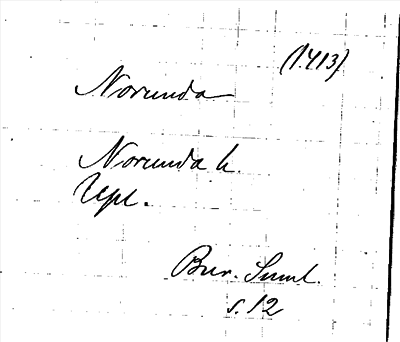 (1413)
Norunda
Norunda h.
Upl.
Bur. Suml.
s. 12